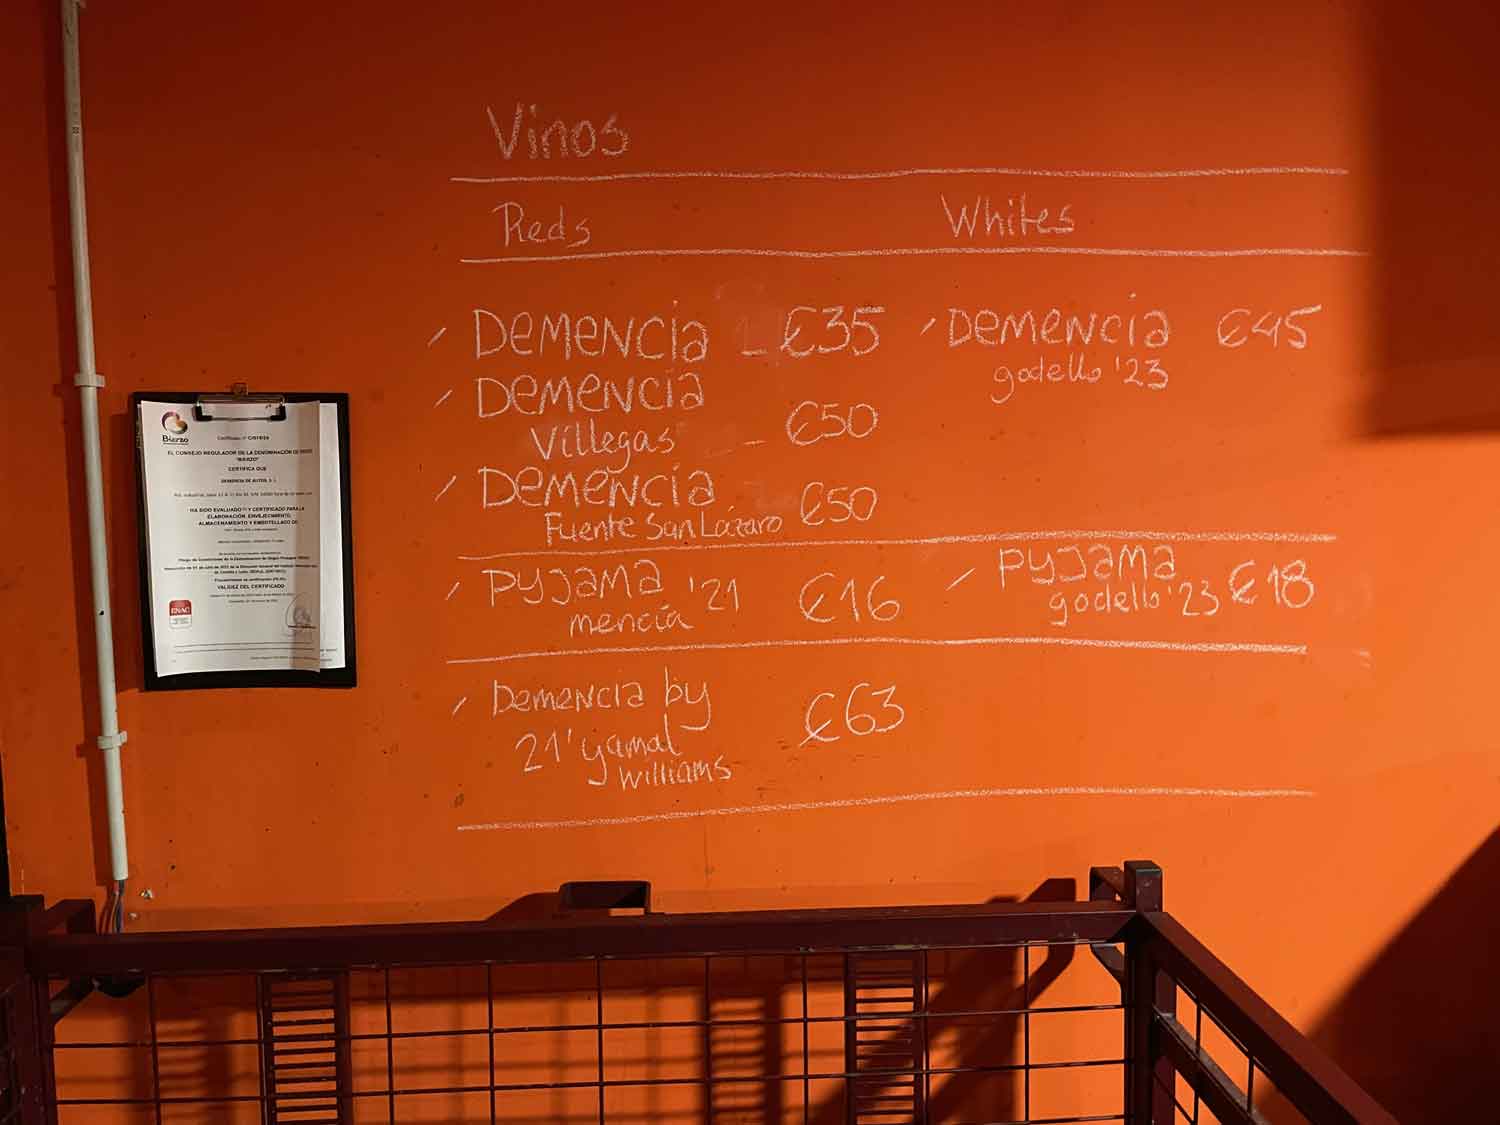 Vinos
Reds
Whites
DEMENCIA - €35
DEMENCIA €45
godello '23
DEMENCIA
Villegas - €50
DEMENCIA €50
Fuente San Lázaro
PYJAMA '21 €16
mencía
PYJAMA €18
godello '23
DEMENCIA by €63
21' yamal
williams
Bierzo
EL CONSEJO REGULADOR DE LA DENOMINACIÓN DE
"BIERZO"
CERTIFICA QUE
DEMENCIA DE AUTOR, S. L.
HA SIDO EVALUADO Y CERTIFICADO PARA LA
ELABORACIÓN, ENVEJECIMIENTO,
ALMACENAMIENTO Y EMBOTELLADO DE:
VALIDEZ DEL CERTIFICADO
ENAC